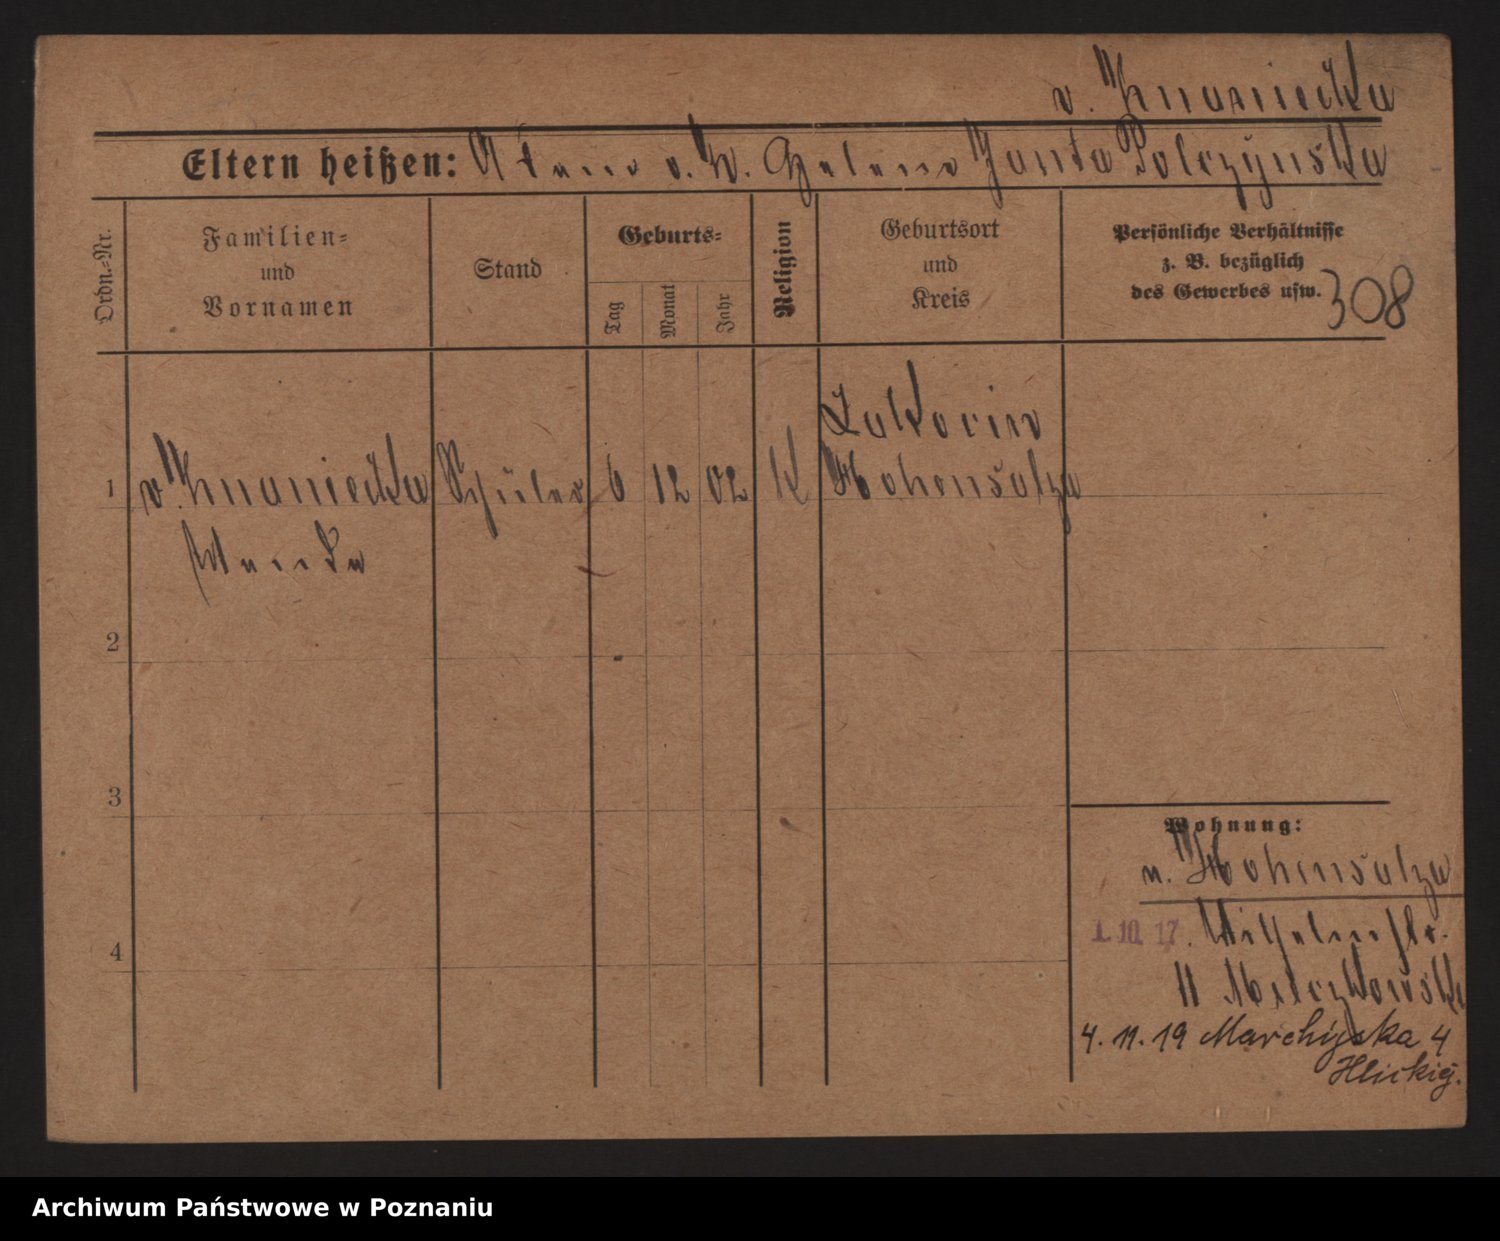 v. Znaniecka
Eltern heißen: v. Z. Helene Janta Polczynska
Ordn.-Nr.
Familien-
und
Vornamen
Stand
Geburts-
Tag
Monat
Jahr
Religion
Geburtsort
und
Kreis
Persönliche Verhältnisse
z. B. bezüglich
des Gewerbes usw.
308
1
v. Znaniecka Schüler 6 12 02 K
Hohensalza
Wanda
2
3
4
Wohnung:
n. Hohensalza
1. 10. 17. Wilhelmstr.
11
4. 11. 19
Archiwum Państwowe w Poznaniu